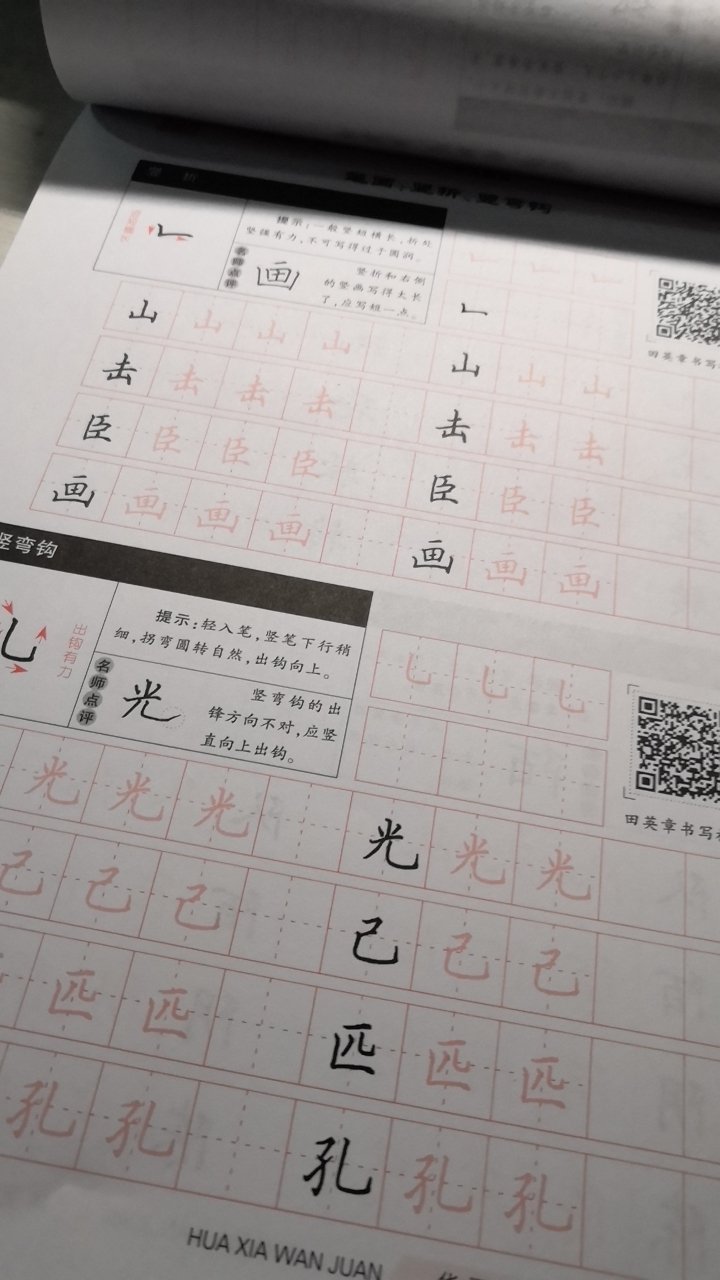 笔画:竖折、竖弯钩
竖 折
提示:一般竖短横长,折处
竖硬有力,不可写得过于圆润。
名师点评
画
竖折和右侧
的竖画写得太长
了,应写短一点。
田英章书写
山 山 山 山 山 山 山
击 击 击 击 击 击 击
臣 臣 臣 臣 臣 臣 臣
画 画 画 画 画 画 画
竖弯钩
出钩有力
提示:轻入笔,竖笔下行稍
细,拐弯圆转自然,出钩向上。
名师点评
光
竖弯钩的出
锋方向不对,应竖
直向上出钩。
田英章书写
光 光 光 光 光 光
己 己 己 己 己 己
匹 匹 匹 匹 匹
孔 孔 孔 孔 孔
HUA XIA WAN JUAN